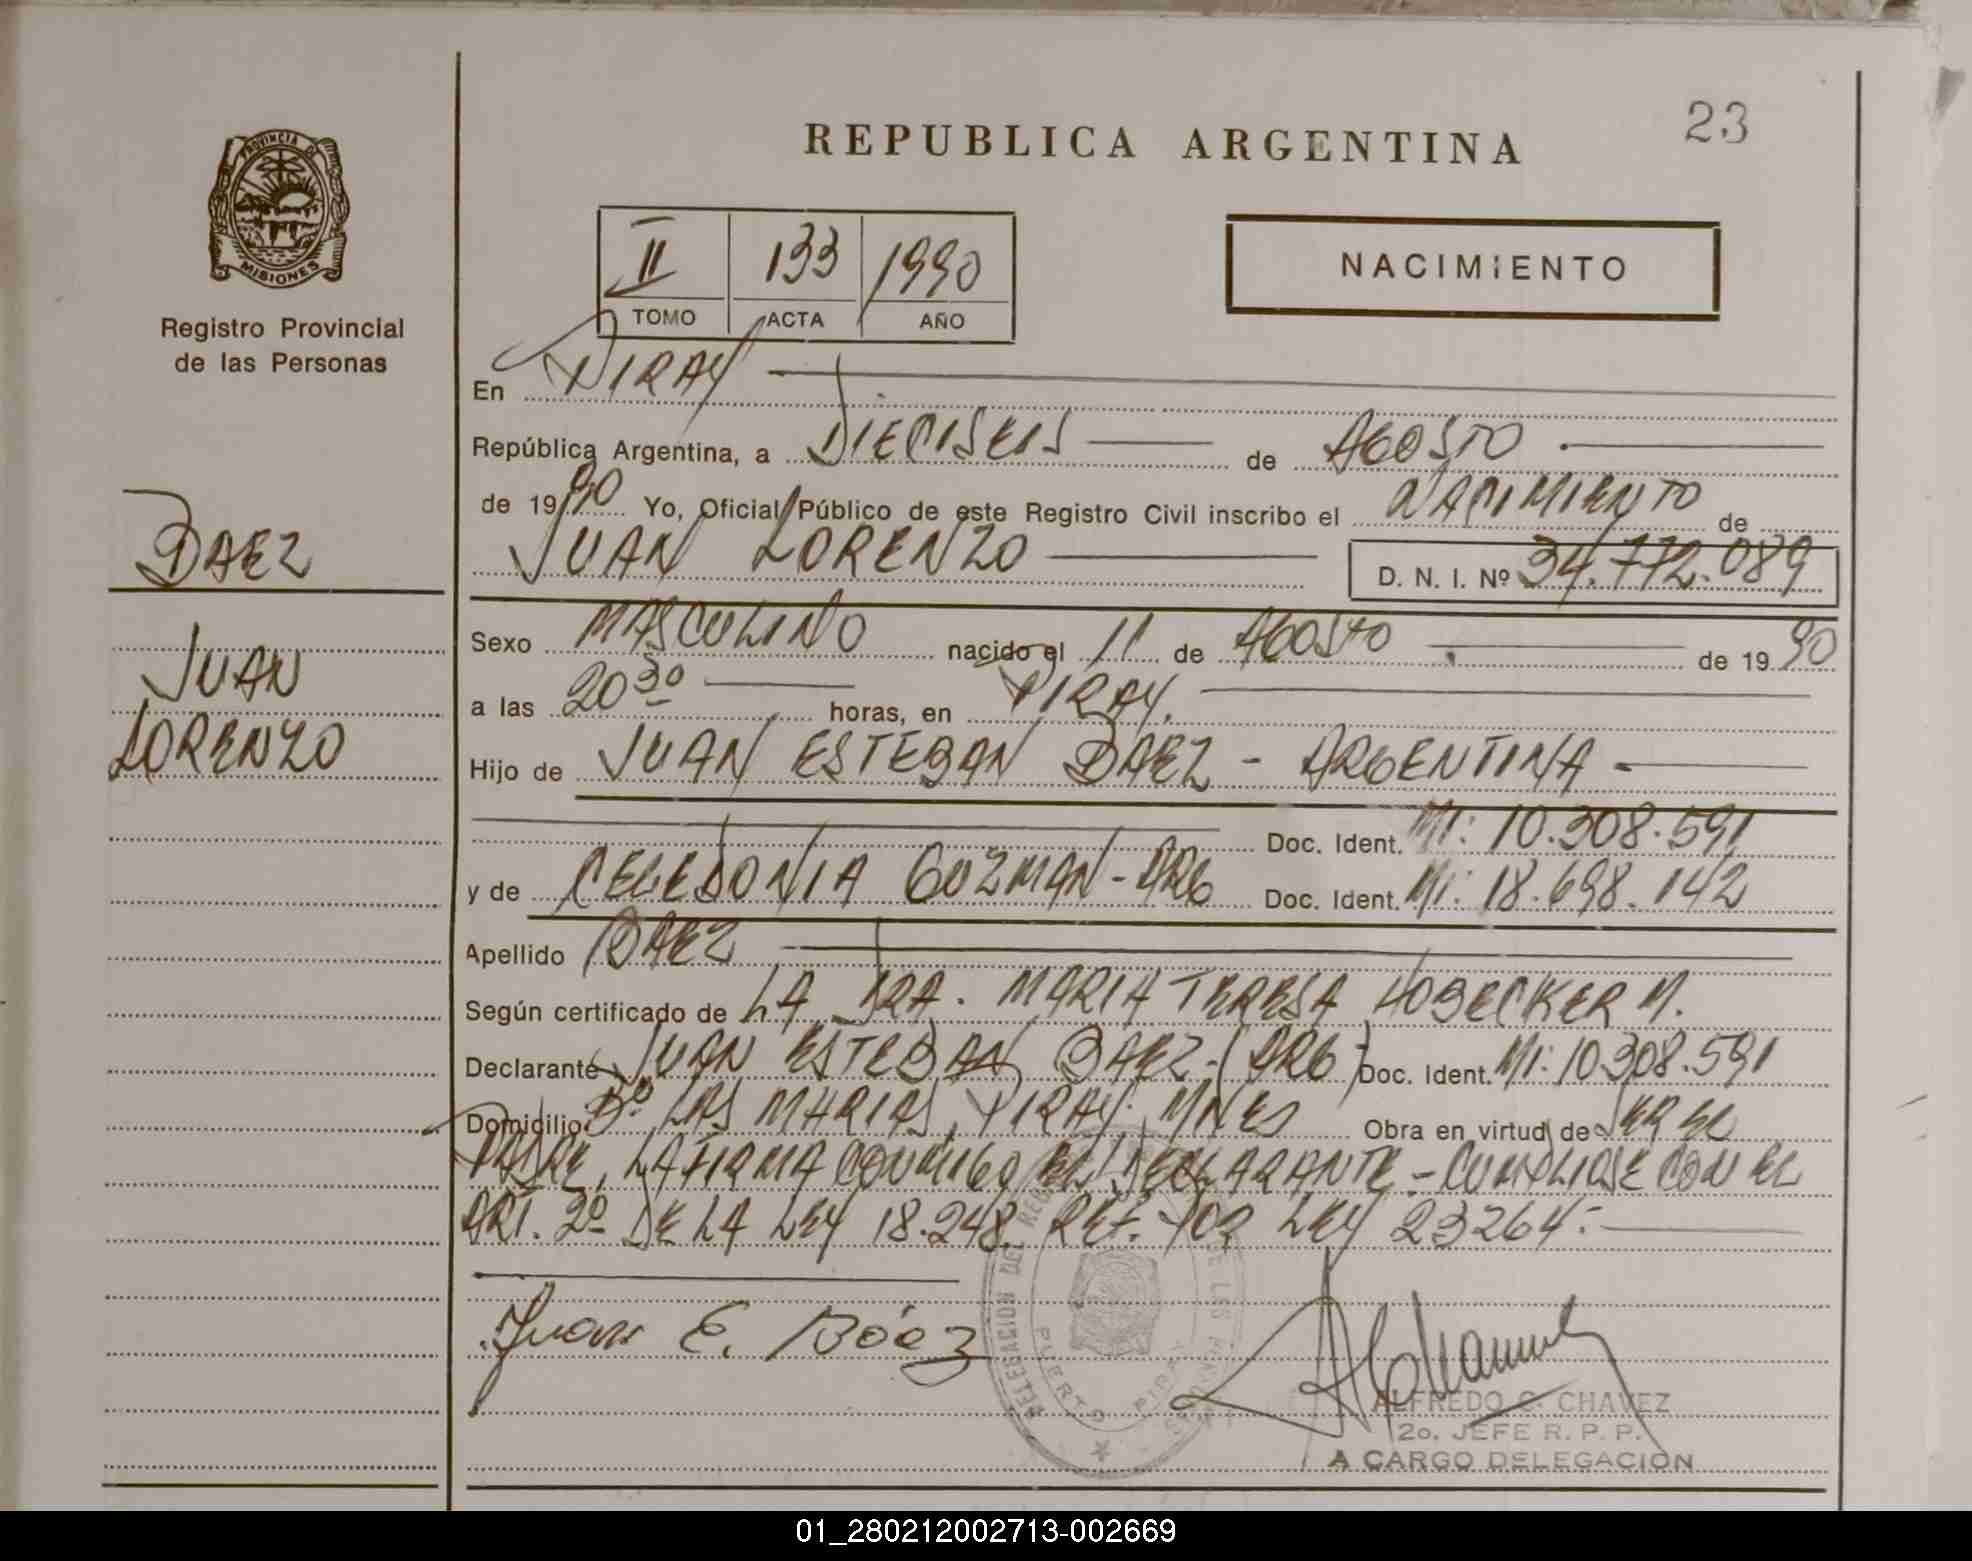 23
REPUBLICA ARGENTINA
PROVINCIA DE
MISIONES
Registro Provincial
de las Personas
II 133 1990
TOMO ACTA AÑO
NACIMIENTO
BAEZ
JUAN
LORENZO
En PIRAY
República Argentina, a DIECISEIS de AGOSTO
de 1990 Yo, Oficial Público de este Registro Civil inscribo el NACIMIENTO de
JUAN LORENZO D. N. I. Nº 34.772.089
Sexo MASCULINO nacido el 11 de AGOSTO de 1990
a las 20 30 horas, en PIRAY.
Hijo de JUAN ESTEBAN BAEZ - ARGENTINA -
Doc. Ident. MI: 10.308.591
y de CELEDONIA GUZMAN - ARG Doc. Ident. MI: 18.698.142
Apellido BAEZ
Según certificado de LA SRA. MARIA TERESA HOBECKER M.
Declarante JUAN ESTEBAN BAEZ - (ARG) Doc. Ident. MI: 10.308.591
Domicilio Bº LAS MARIAS, PIRAY. MNES Obra en virtud de SER EL
PADRE, LA FIRMA CONMIGO EL DECLARANTE - CUMPLIOSE CON EL
ART. 2º DE LA LEY 18.248. REF. POR LEY 23264:
Juan E. Báez
DELEGACION DEL REG DE LAS
PUERTO PIRAY
ALFREDO C. CHAVEZ
2o. JEFE R. P. P.
A CARGO DELEGACION
01_280212002713-002669